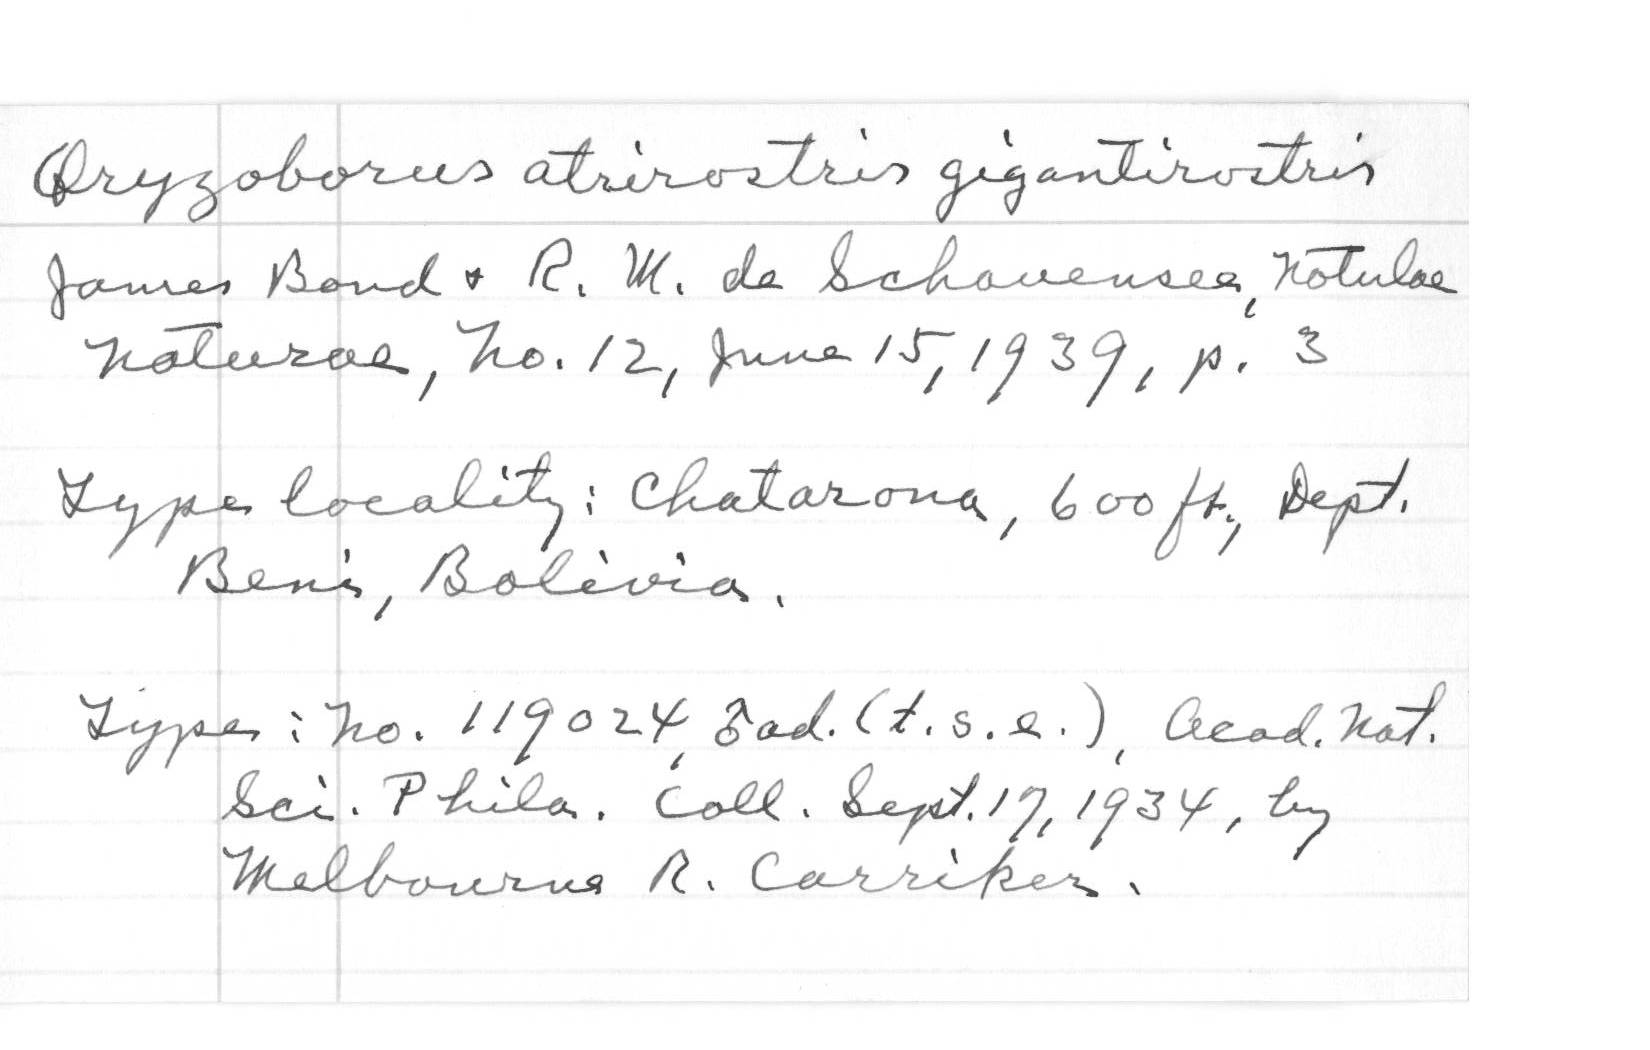 Oryzoborus atrirostris gigantirostris
James Bond & R. M. de Schauensee, Notulae
Naturae, No. 12, June 15, 1939, p. 3
Type locality: Chatarona, 600 ft., Dept.
Beni, Bolivia.
Type: No. 119024, ♂ ad. (t.s.e.), Acad. Nat.
Sci. Phila. Coll. Sept. 17, 1934, by
Melbourne R. Carriker.